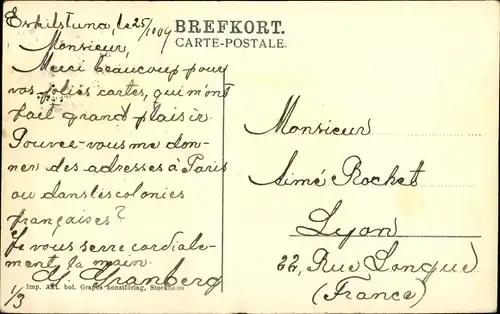 Eskilstuna, le 25/10 09
BREFKORT.
CARTE-POSTALE.
Monsieur,
Merci beaucoup pour
vos jolies cartes, qui m'ont
fait grand plaisir.
Pouvez-vous me don-
ner des adresses à Paris
ou dans les colonies
françaises?
Je vous serre cordiale-
ment, la main.
Granberg
1/3
Imp. Akt. bol. Grapes konstförlag, Stockholm
Monsieur
Aimé Rochet
Lyon
22, Rue Longue
(France)